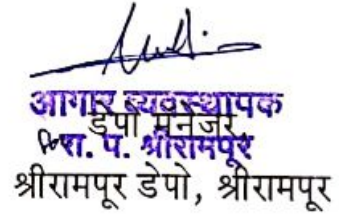 आगार व्यवस्थापक
डेपो मॅनेजर,
रा. प. श्रीरामपूर
श्रीरामपूर डेपो, श्रीरामपूर